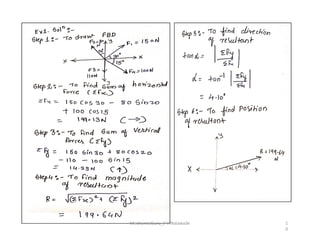 Ex1. Solⁿ :-
Step 1:- To draw FBD
F2=80N
y
F1 = 150N
x
x
30°
15°
F3 = 110N
F4 = 100N
Step 2:- To find Sum of horizontal
Force (ΣFx)
ΣFx = 150 cos 30 - 80 Sin 20
+ 100 cos 15
= 199.13N (→)
Step 3:- To find Sum of vertical
Forces (ΣFy)
ΣFy = 150 Sin 30 + 80 cos 20
- 110 - 100 Sin 15
= 14.29N (↑)
Step 4:- To find magnitude
of resultant
R = √(ΣFx)² + (ΣFy)²
= 199.64N
Step 5:- To find direction
of resultant
tanα = |ΣFy / ΣFx|
α = tan⁻¹ |ΣFy / ΣFx|
= 4.10°
Step 6:- To find Position
of resultant
y
R = 199.64 N
x
α = 4.10°
x